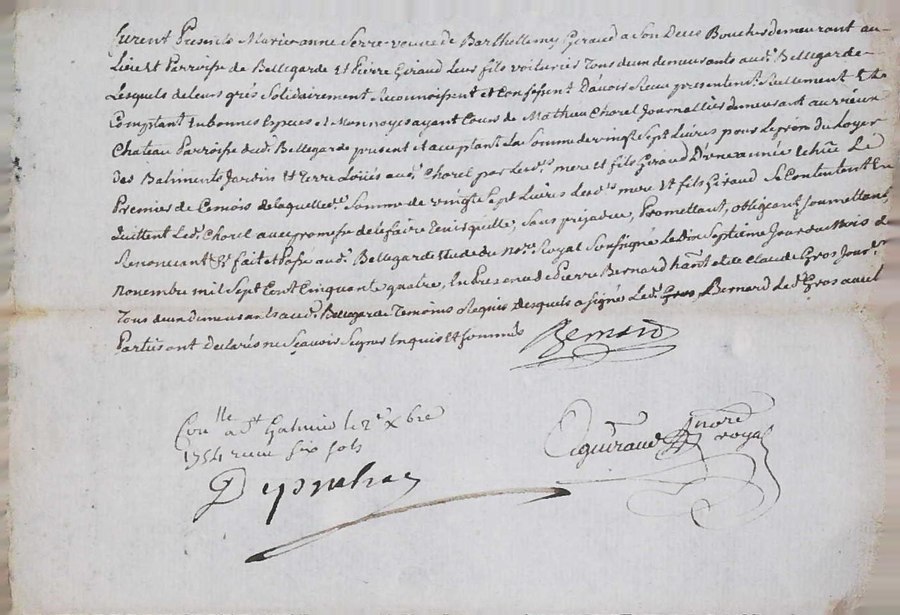 furent Presents Marie anne Serre veuve de Barthellemy Giraud a Son Deces Boucher demeurant au
Lieu et Parroisse de Bellegarde et Pierre Giraud Leur fils voiturier Tous deux demeurants aud. Bellegarde
Lesquels de leurs grés Solidairement Reconnoissent et Confessent D'avoir Receu presentemt. Reellement et
Comptant en bonnes Especes et Monnoyes ayant Cours de Mathieu Chorel Journallier demeurant au vieux
Chateau Parroisse dud. Bellegarde present et acceptant La Somme de vingt Sept Livres pour Le prix du Loyer
des Batiments Jardin et Terre Loüés aud. Chorel par Lesd. mere et fils Giraud D'une année Echüe Le
Premier de Ce mois de laquelle Somme de vingt Sept Livres Lesd. mere et fils Giraud Se Contentent En
quittent Led. Chorel avec promesse de Le faire Tenir quitte, Sans prejudice, Promettant, obligeant, Soumettant,
Renoncant, fait et Passé aud. Bellegarde Etude du Nore. Royal Soussigné Le Dix Septième Jour du Mois de
novembre mil Sept Cent Cinquante quatre, En presence de Pierre Bernard et de Claude Gros Jour.
Tous deux demeurants aud. Bellegarde Temoins Requis desquels a signé Led. Bernard Led. Gros
Parties ont Declarés ne Sçavoir Signer Enquis et Sommés
Bernard
Conlle a St Galmier le 2e Xbre
1754 receu six sols
Guiraud Nore
royal